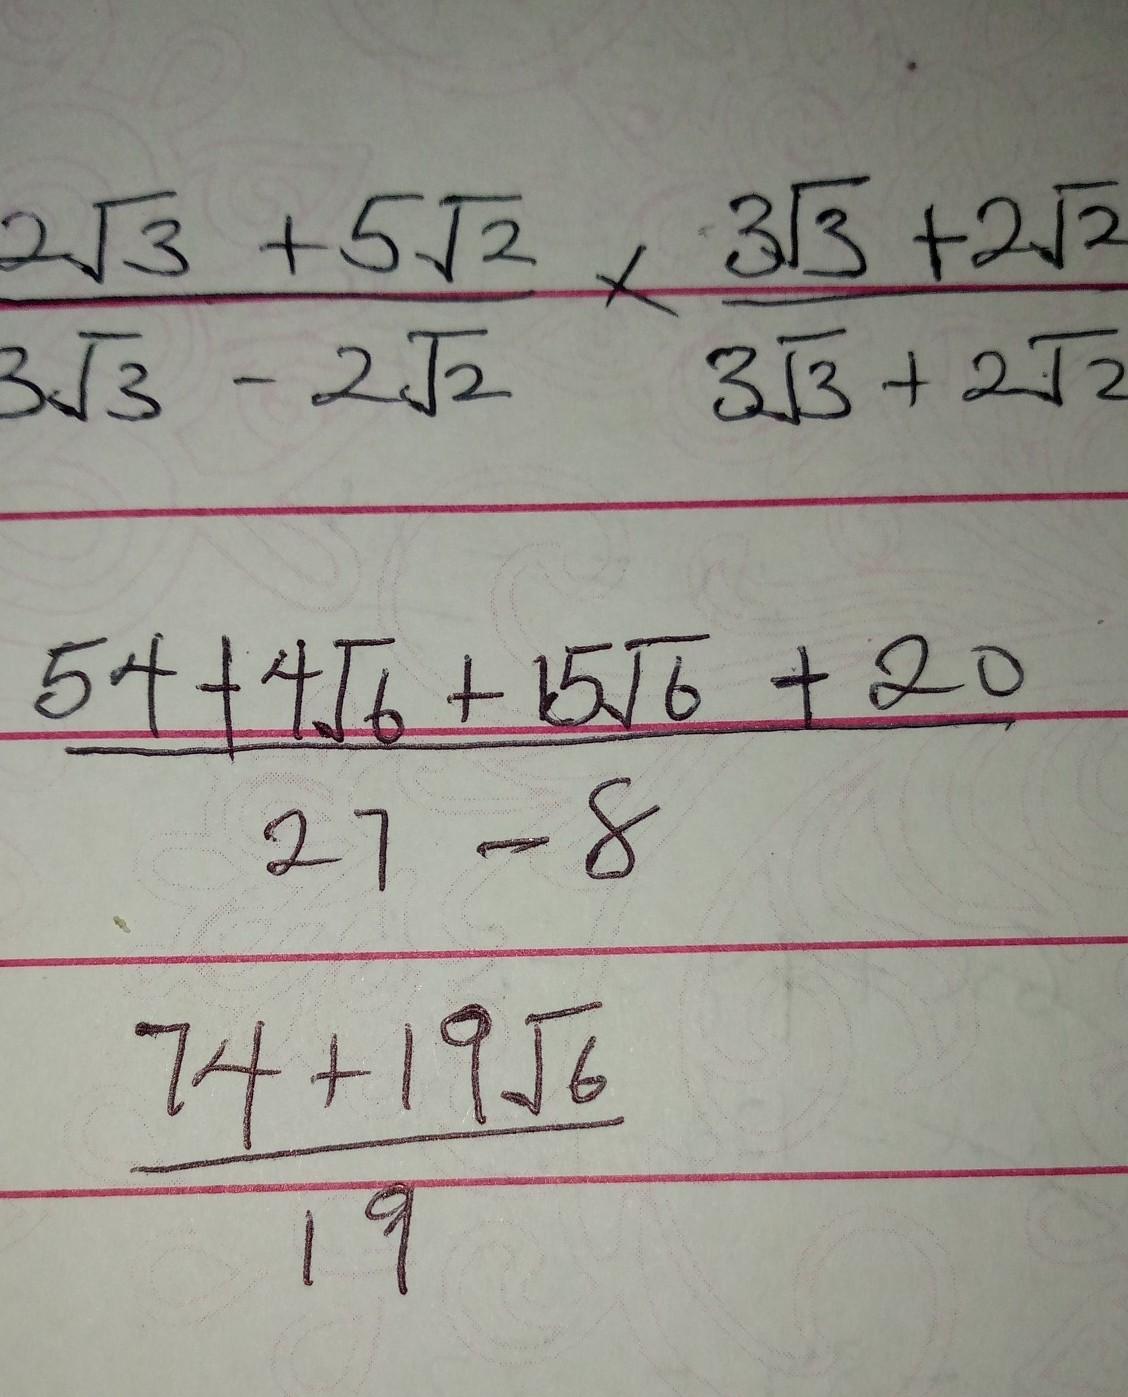 2√3 + 5√2 × 3√3 + 2√2
3√3 - 2√2 3√3 + 2√2
54 + 4√6 + 15√6 + 20
27 - 8
74 + 19√6
19